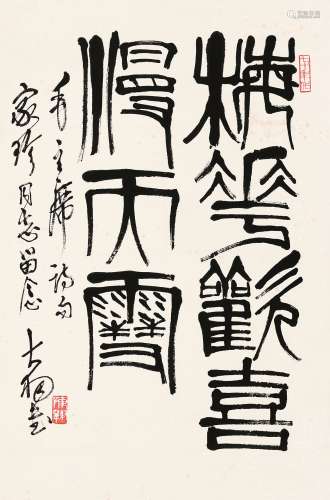 梅花歡喜
漫天雪
毛主席詩句
家珍同志留念 大羽